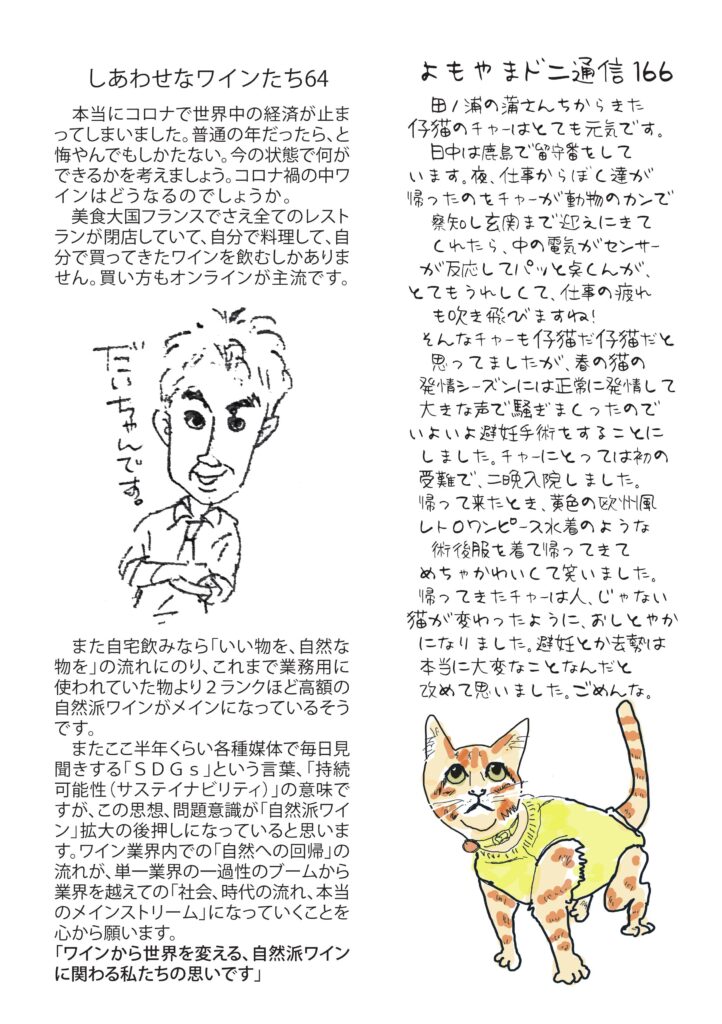 しあわせなワインたち64
　本当にコロナで世界中の経済が止ま
ってしまいました。普通の年だったら、と
悔やんでもしかたない。今の状態で何が
できるかを考えましょう。コロナ禍の中ワ
インはどうなるのでしょうか。
　美食大国フランスでさえ全てのレスト
ランが閉店していて、自分で料理して、自
分で買ってきたワインを飲むしかありま
せん。買い方もオンラインが主流です。
だいちゃんです。
　また自宅飲みなら「いい物を、自然な
物を」の流れにのり、これまで業務用に
使われていた物より２ランクほど高額の
自然派ワインがメインになっているそう
です。
　またここ半年くらい各種媒体で毎日見
聞きする「ＳＤＧｓ」という言葉、「持続
可能性（サステイナビリティ）」の意味で
すが、この思想、問題意識が「自然派ワイ
ン」拡大の後押しになっていると思いま
す。ワイン業界内での「自然への回帰」の
流れが、単一業界の一過性のブームから
業界を越えての「社会、時代の流れ、本当
のメインストリーム」になっていくことを
心から願います。
「ワインから世界を変える、自然派ワイン
に関わる私たちの思いです」
よもやまドニ通信 166
田ノ浦の蒲さんちからきた
仔猫のチャーはとても元気です。
日中は鹿島で留守番をして
います。夜、仕事からぼく達が
帰ったのをチャーが動物のカンで
察知し玄関まで迎えにきて
くれたら、中の電気がセンサー
が反応してパッと点くんが、
とてもうれしくて、仕事の疲れ
も吹き飛びますね！
そんなチャーも仔猫だ仔猫だと
思ってましたが、春の猫の
発情シーズンには正常に発情して
大きな声で騒ぎまくったので
いよいよ避妊手術をすることに
しました。チャーにとっては初の
受難で、二晩入院しました。
帰って来たとき、黄色の欧州風
レトロワンピース水着のような
術後服を着て帰ってきて
めちゃかわいくて笑いました。
帰ってきたチャーは人、じゃない
猫が変わったように、おしとやか
になりました。避妊とか去勢は
本当に大変なことなんだと
改めて思いました。ごめんな。